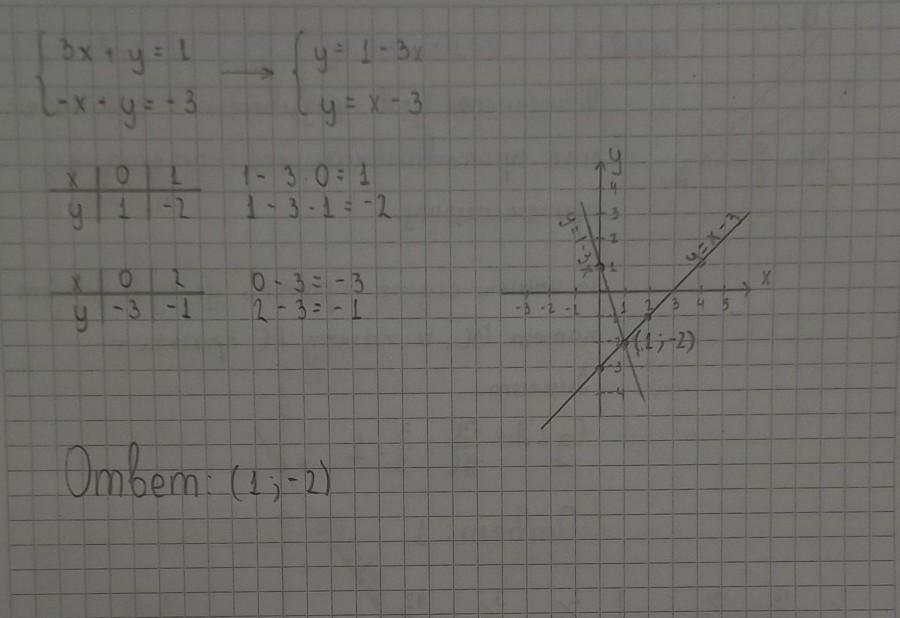 { 3x + y = 1 → { y = 1 - 3x
{ -x + y = -3 { y = x - 3
x 0 1 1 - 3 · 0 = 1
y 1 -2 1 - 3 · 1 = -2
x 0 2 0 - 3 = -3
y -3 -1 2 - 3 = -1
y
4
3
2
1
y = 1 - 3x
y = x - 3
x
-3 -2 -1 1 2 3 4 5
-1
-2 (1; -2)
-3
-4
Ответ: (1; -2)